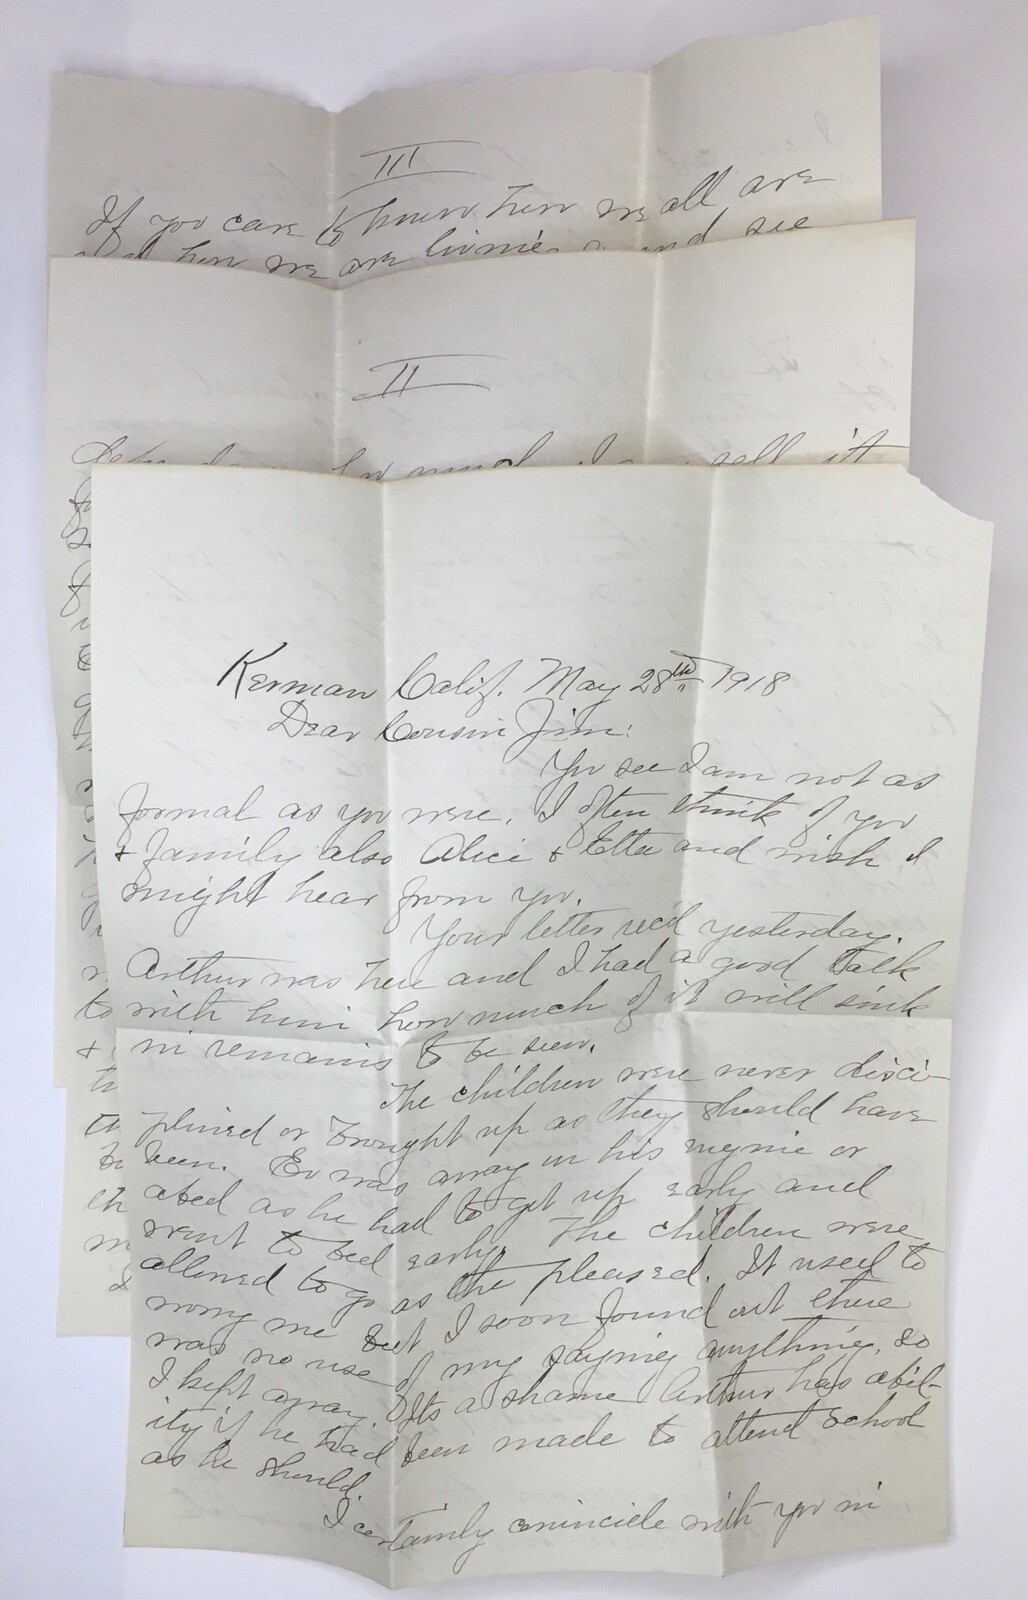 III
If you care to know how we all are
how we are living and see
II
sell it
Kerman Calif. May 28th 1918
Dear Cousin Jim:
You see I am not as
formal as you were. I often think of you
& family also Alice & Etta and wish I
might hear from you.
Your letter rec'd yesterday.
Arthur was here and I had a good talk
with him how much of it will sink
in remains to be seen.
The children were never disci-
plined or brought up as they should have
been. Ev was away in his mine or
abed as he had to get up early and
went to bed early. The children were
allowed to go as the pleased. It used to
worry me but I soon found out there
was no use of my saying anything, so
I kept away. Its a shame Arthur has abil-
ity if he had been made to attend school
as he should.
I certainly coincide with you in